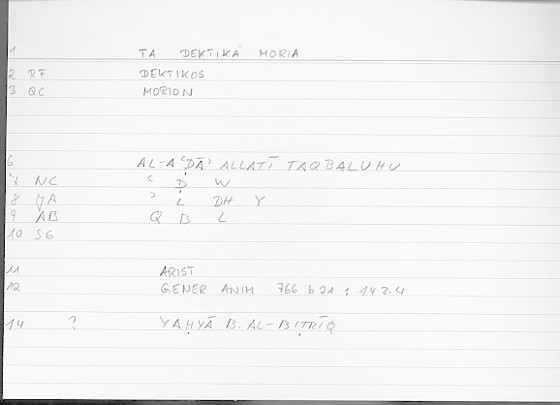 1 TA DEKTIKA MORIA
2 RF DEKTIKOS
3 QC MORION
6 AL-AʿḌĀʾ ALLATĪ TAQBALUHU
7 NC ʿ Ḍ W
8 JA ʾ L DH Y
9 AB Q B L
10 SG
11 ARIST
12 GENER ANIM 766 b 21 ; 142.4
14 ? YAḤYĀ B. AL-BIṬRĪQ